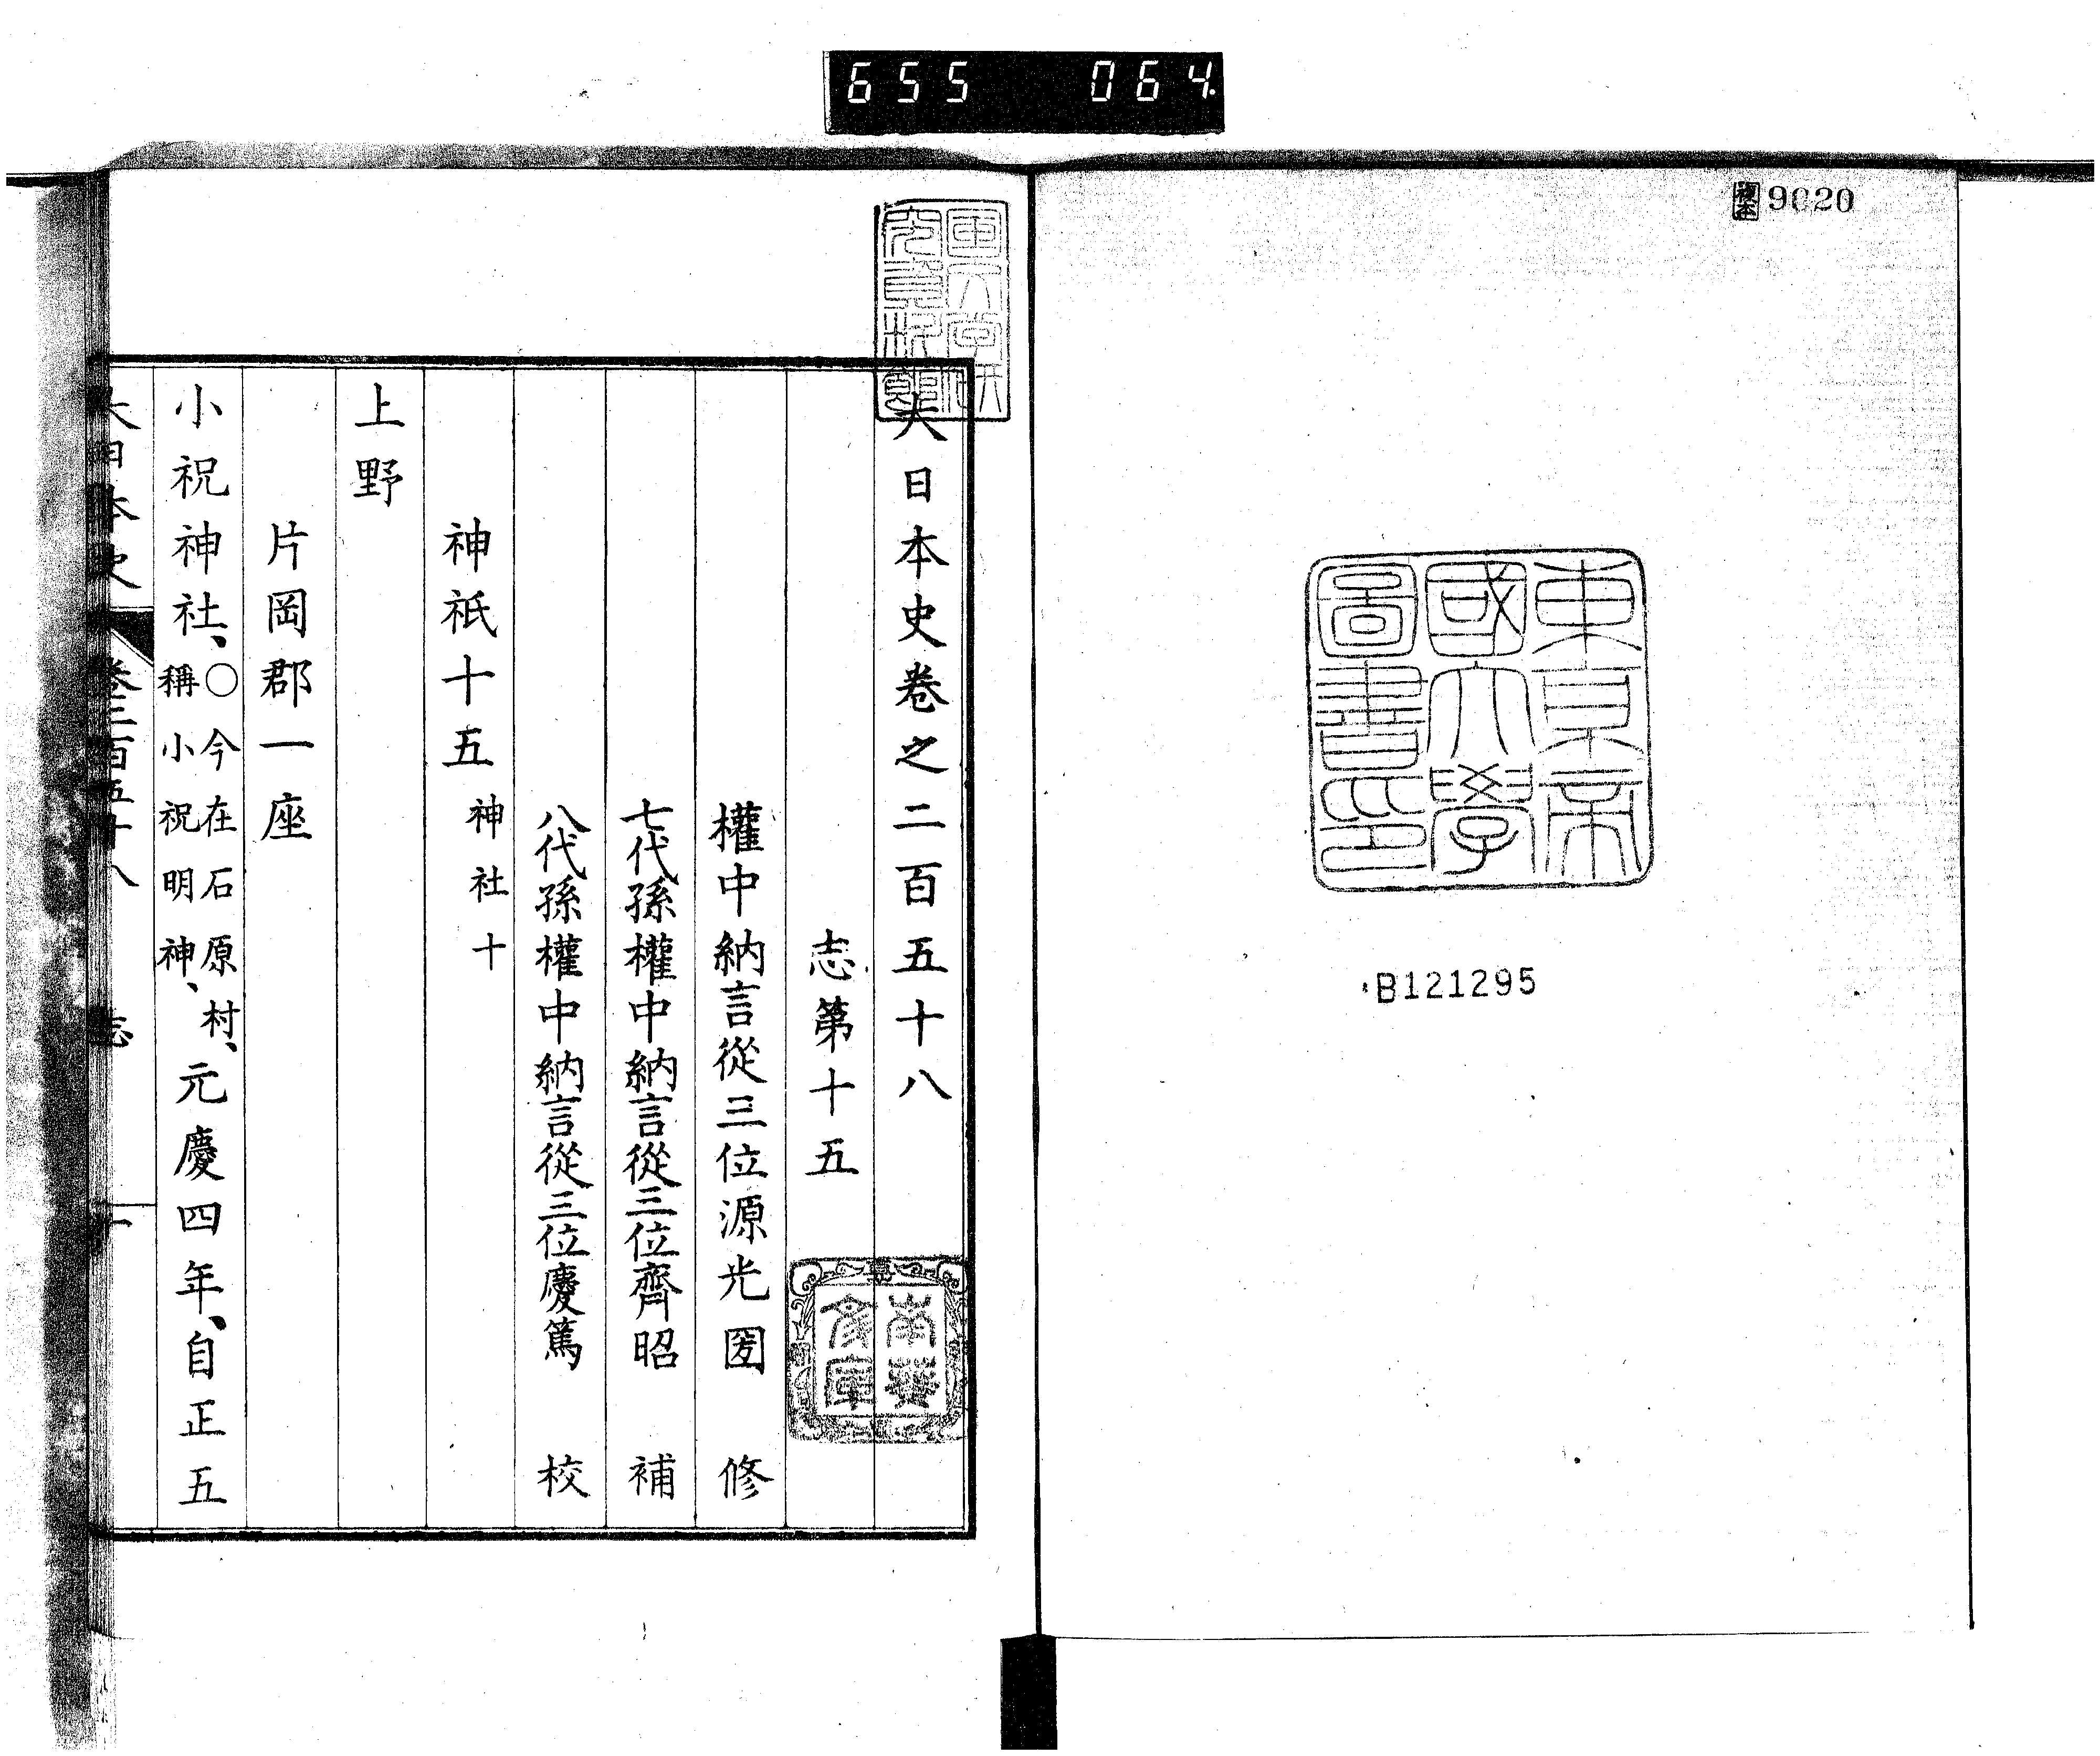 655 064
複本 9020
東京帝
國大學
圖書印
B121295
大日本史卷之二百五十八
志第十五
權中納言從三位源光圀 修
七代孫權中納言從三位齊昭 補
八代孫權中納言從三位慶篤 校
神祇十五 神社十
上野
片岡郡一座
小祝神社、○今在石原村、稱小祝明神、元慶四年、自正五
大日本史 卷二百五十八 志
南葵
文庫